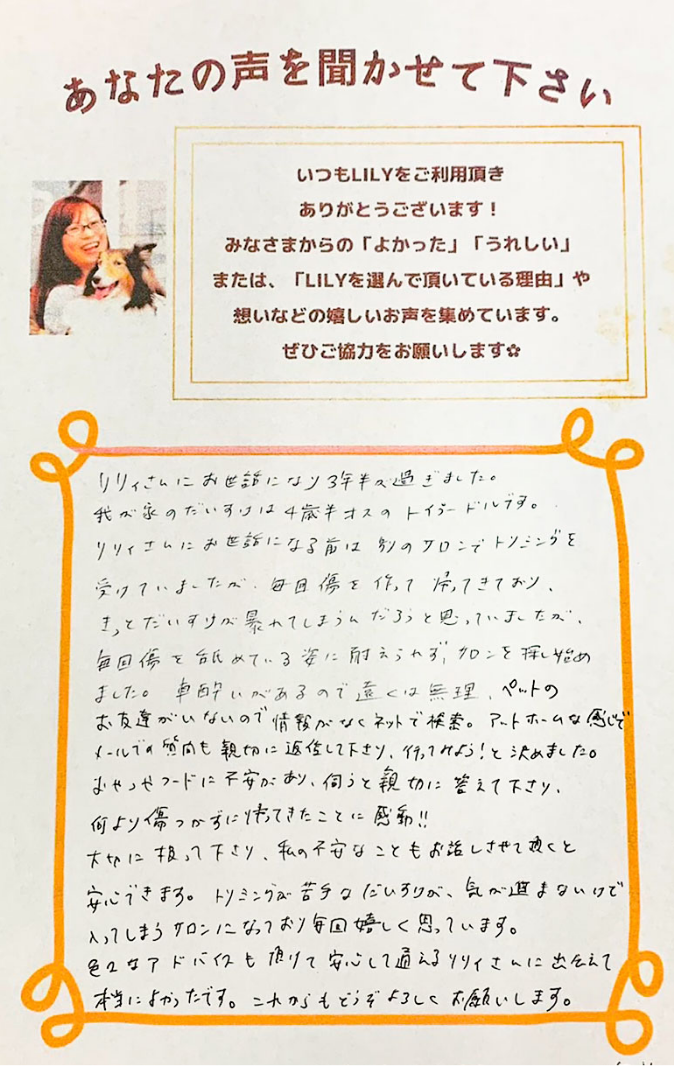 あなたの声を聞かせて下さい
いつもLILYをご利用頂き
ありがとうございます！
みなさまからの「よかった」「うれしい」
または、「LILYを選んで頂いている理由」や
想いなどの嬉しいお声を集めています。
ぜひご協力をお願いします✿
リリィさんにお世話になり3年半が過ぎました。
我が家のだいすけは4歳半オスのトイプードルです。
リリィさんにお世話になる前は別のサロンでトリミングを
受けていましたが、毎回傷を作って帰ってきており、
きっとだいすけが暴れてしまうんだろうと思っていましたが、
毎回傷を舐めている姿に耐えられず、サロンを探し始め
ました。車酔いがあるので遠くは無理、ペットの
お友達がいないので情報がなくネットで検索。アットホームな感じで
メールでの質問も親切に返信して下さり、行ってみよう！と決めました。
おやつやフードに不安があり、伺うと親切に答えて下さり、
何より傷つかずに帰ってきたことに感動!!
大切に扱って下さり、私の不安なこともお話しさせて頂くと
安心できます。トリミングが苦手なだいすけが、気が進まないけど
入ってしまうサロンになっており毎回嬉しく思っています。
色々なアドバイスも頂けて安心して通えるリリィさんに出会えて
本当によかったです。これからもどうぞよろしくお願いします。